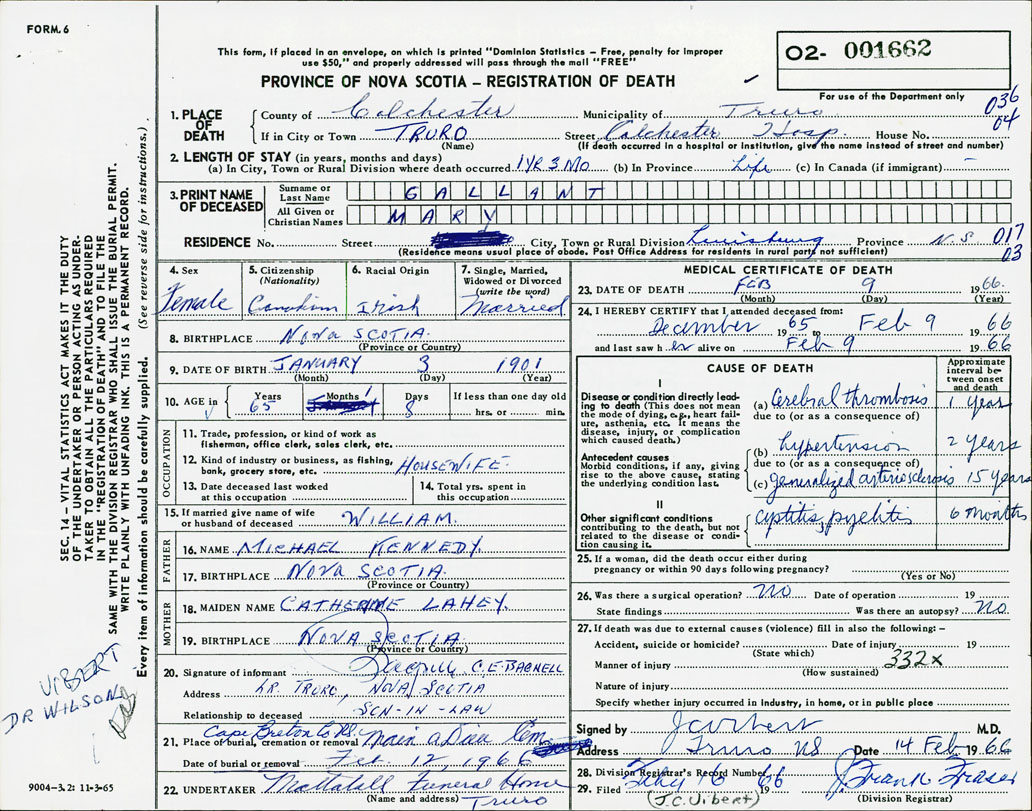 FORM. 6
This form, if placed in an envelope, on which is printed "Dominion Statistics – Free, penalty for improper
use $50," and properly addressed will pass through the mail "FREE"
PROVINCE OF NOVA SCOTIA – REGISTRATION OF DEATH
O2- 001662
For use of the Department only
036
04
1. PLACE OF DEATH
County of Colchester Municipality of Truro
If in City or Town TRURO Street Colchester Hosp. House No.
(Name) (If death occurred in a hospital or institution, give the name instead of street and number)
2. LENGTH OF STAY (in years, months and days)
(a) In City, Town or Rural Division where death occurred 1 YR 3 MO (b) In Province Life (c) In Canada (if immigrant) –
3. PRINT NAME OF DECEASED
Surname or Last Name GALLANT
All Given or Christian Names MARY
RESIDENCE No. Street City, Town or Rural Division Louisburg Province N.S 017
03
(Residence means usual place of abode. Post Office Address for residents in rural parts not sufficient)
4. Sex
Female
5. Citizenship
(Nationality)
Canadian
6. Racial Origin
Irish
7. Single, Married,
Widowed or Divorced
(write the word)
Married
8. BIRTHPLACE NOVA SCOTIA.
(Province or Country)
9. DATE OF BIRTH JANUARY 3 1901
(Month) (Day) (Year)
10. AGE in Years 65 Months Days 8 If less than one day old
hrs. or min.
OCCUPATION
11. Trade, profession, or kind of work as
fisherman, office clerk, sales clerk, etc.
12. Kind of industry or business, as fishing,
bank, grocery store, etc. HOUSEWIFE.
13. Date deceased last worked
at this occupation
14. Total yrs. spent in
this occupation
15. If married give name of wife
or husband of deceased WILLIAM.
FATHER
16. NAME MICHAEL KENNEDY.
17. BIRTHPLACE NOVA SCOTIA.
(Province or Country)
MOTHER
18. MAIDEN NAME CATHERINE LAHEY.
19. BIRTHPLACE NOVA SCOTIA.
(Province or Country)
20. Signature of informant C. E. BAGNELL
Address LR. TRURO, NOVA SCOTIA
Relationship to deceased SON-IN-LAW
Cape Breton Co NS.
21. Place of burial, cremation or removal Main a Dieu Cem
Date of burial or removal Feb. 12, 1966
22. UNDERTAKER Mattatall Funeral Home
(Name and address) Truro
MEDICAL CERTIFICATE OF DEATH
23. DATE OF DEATH FEB 9 1966.
(Month) (Day) (Year)
24. I HEREBY CERTIFY that I attended deceased from:
December 1965 to Feb 9 1966
and last saw her alive on Feb 9 1966
CAUSE OF DEATH
Approximate
interval be-
tween onset
and death
I
Disease or condition directly lead-
ing to death (This does not mean
the mode of dying, e.g., heart fail-
ure, asthenia, etc. It means the
disease, injury, or complication
which caused death.)
(a) Cerebral thrombosis 1 year
due to (or as a consequence of)
Antecedent causes
Morbid conditions, if any, giving
rise to the above cause, stating
the underlying condition last.
(b) hypertension 2 years
due to (or as a consequence of)
(c) generalized arteriosclerosis 15 years
II
Other significant conditions
contributing to the death, but not
related to the disease or condi-
tion causing it.
cystitis, pyelitis 6 months
25. If a woman, did the death occur either during
pregnancy or within 90 days following pregnancy?
(Yes or No)
26. Was there a surgical operation? no Date of operation 19
State findings Was there an autopsy? no
27. If death was due to external causes (violence) fill in also the following: –
Accident, suicide or homicide? Date of injury 19
(State which)
Manner of injury 332x
(How sustained)
Nature of injury
Specify whether injury occurred in industry, in home, or in public place
Signed by J C Vibert M.D.
Address Truro NS Date 14 Feb 1966
28. Division Registrar's Record Number
29. Filed Feby 16 1966 Frank Fraser
(J.C. Vibert) (Division Registrar)
SEC. 14 – VITAL STATISTICS ACT MAKES IT THE DUTY
OF THE UNDERTAKER OR PERSON ACTING AS UNDER-
TAKER TO OBTAIN ALL THE PARTICULARS REQUIRED
IN THE "REGISTRATION OF DEATH" AND TO FILE THE
SAME WITH THE DIVISION REGISTRAR WHO SHALL ISSUE THE BURIAL PERMIT.
WRITE PLAINLY WITH UNFADING INK. THIS IS A PERMANENT RECORD.
Every item of information should be carefully supplied. (See reverse side for instructions.)
VIBERT
DR WILSON
9004-3.2: 11-3-65